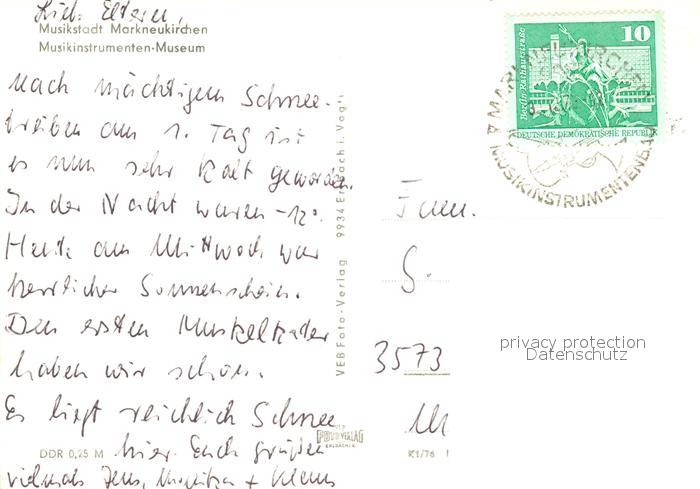 Lieb. Eltern,
Musikstadt Markneukirchen
Musikinstrumenten-Museum
Nach mächtigem Schnee-
treiben am 1. Tag ist
es nun sehr kalt geworden.
In der Nacht waren -12°.
Heute am Mittwoch war
herrlicher Sonnenschein.
Den ersten Muskelkater
haben wir schon.
Es liegt reichlich Schnee
hier. Euch grüßen
vielmals Jens, + Klaus
DDR 0,25 M
VEB Foto-Verlag 9934 Erlbach i. Vogtl.
FOTO VERLAG
ERLBACH
K1/76
10
Berlin, Rathausstraße
DEUTSCHE DEMOKRATISCHE REPUBLIK
MARKNEUKIRCHEN
MUSIKINSTRUMENTENBAU
Fam.
G.
3573
privacy protection
Datenschutz